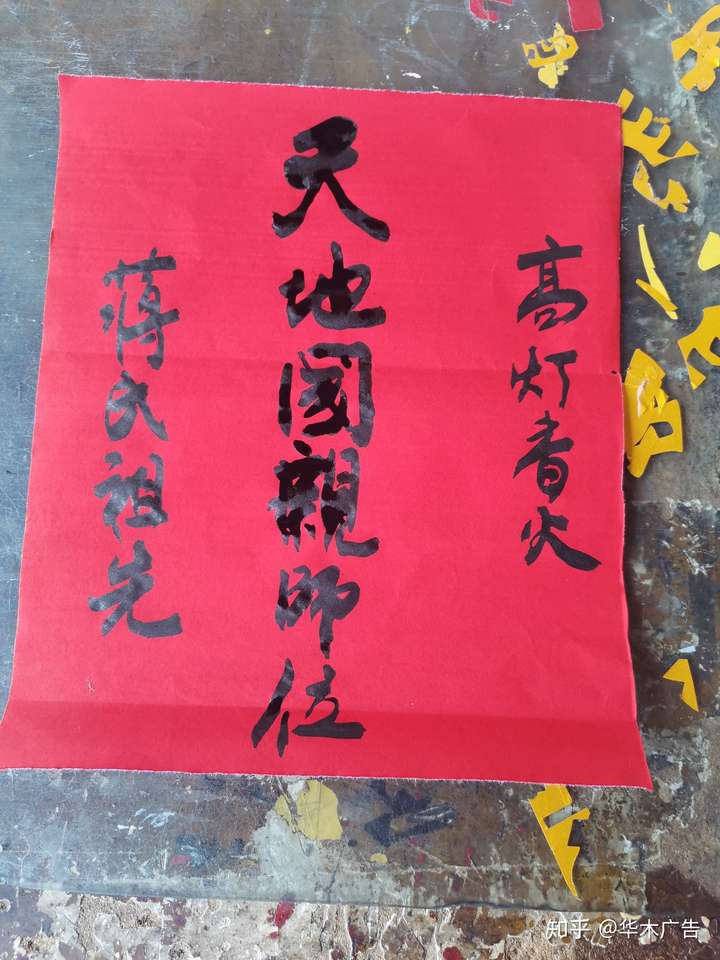 高灯香火
天地國親師位
蒋氏祖先
知乎 @华木广告